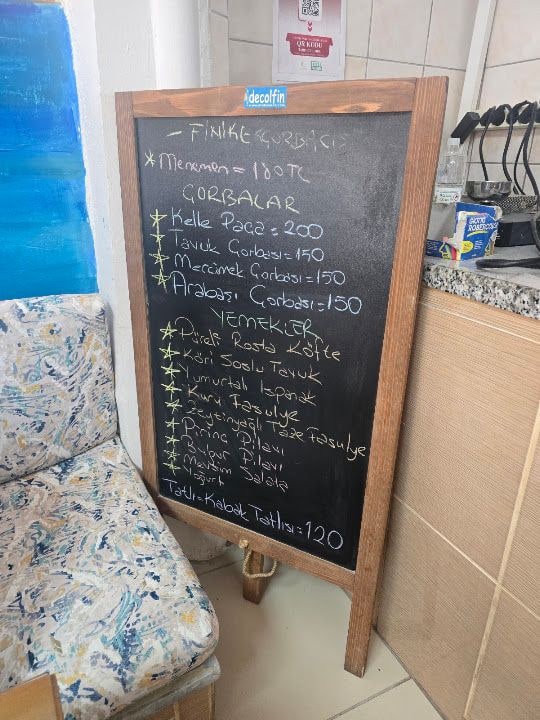 QR KODU
decolfin
- FİNİKE ÇORBACISI
* Menemen = 180 TL
ÇORBALAR
* Kelle Paça = 200
* Tavuk Çorbası = 150
* Mercimek Çorbası = 150
* Arabaşı Çorbası = 150
YEMEKLER
* Püreli Rosto Köfte
* Köri Soslu Tavuk
* Yumurtalı Ispanak
* Kuru Fasulye
* Zeytinyağlı Taze Fasulye
* Pirinç Pilavı
* Bulgur Pilavı
* Mevsim Salata
* Yoğurt
Tatlı = Kabak Tatlısı = 120